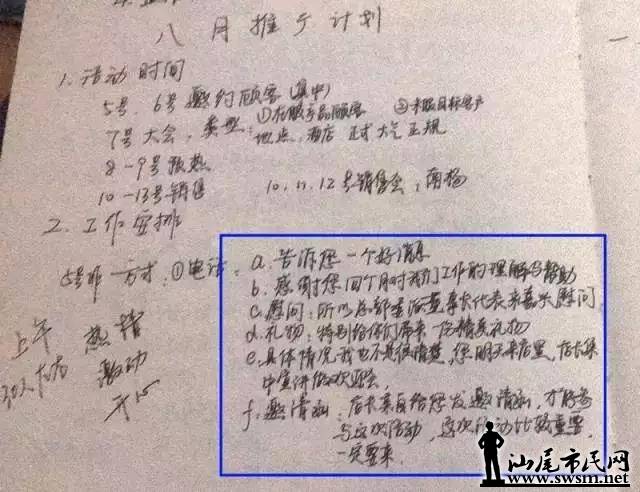 八月推广计划
1. 活动时间
5号、6号邀约顾客(集中)
7号大会，类型：①在服产品顾客 ②未服目标客户
地点，酒店 正式 大气 正规
8-9号预热
10-13号销售 10、11、12号销售会，
2. 工作安排
方式：①电话：a. 告诉您一个好消息
b. 感谢您四个月对我们工作的理解与帮助
c. 慰问：所以总部董事长代表来嘉兴慰问
d. 礼物：特别给你们带来一份精美礼物
e. 具体情况我也不是很清楚，您明天来店里，店长集
中宣讲
f. 邀请函：店长亲自给您发邀请函，才能参
与这次活动，这次活动比较重要，
一定要来
上午 热情
30人左右 激动
开心
汕尾市民网
www.swsm.net